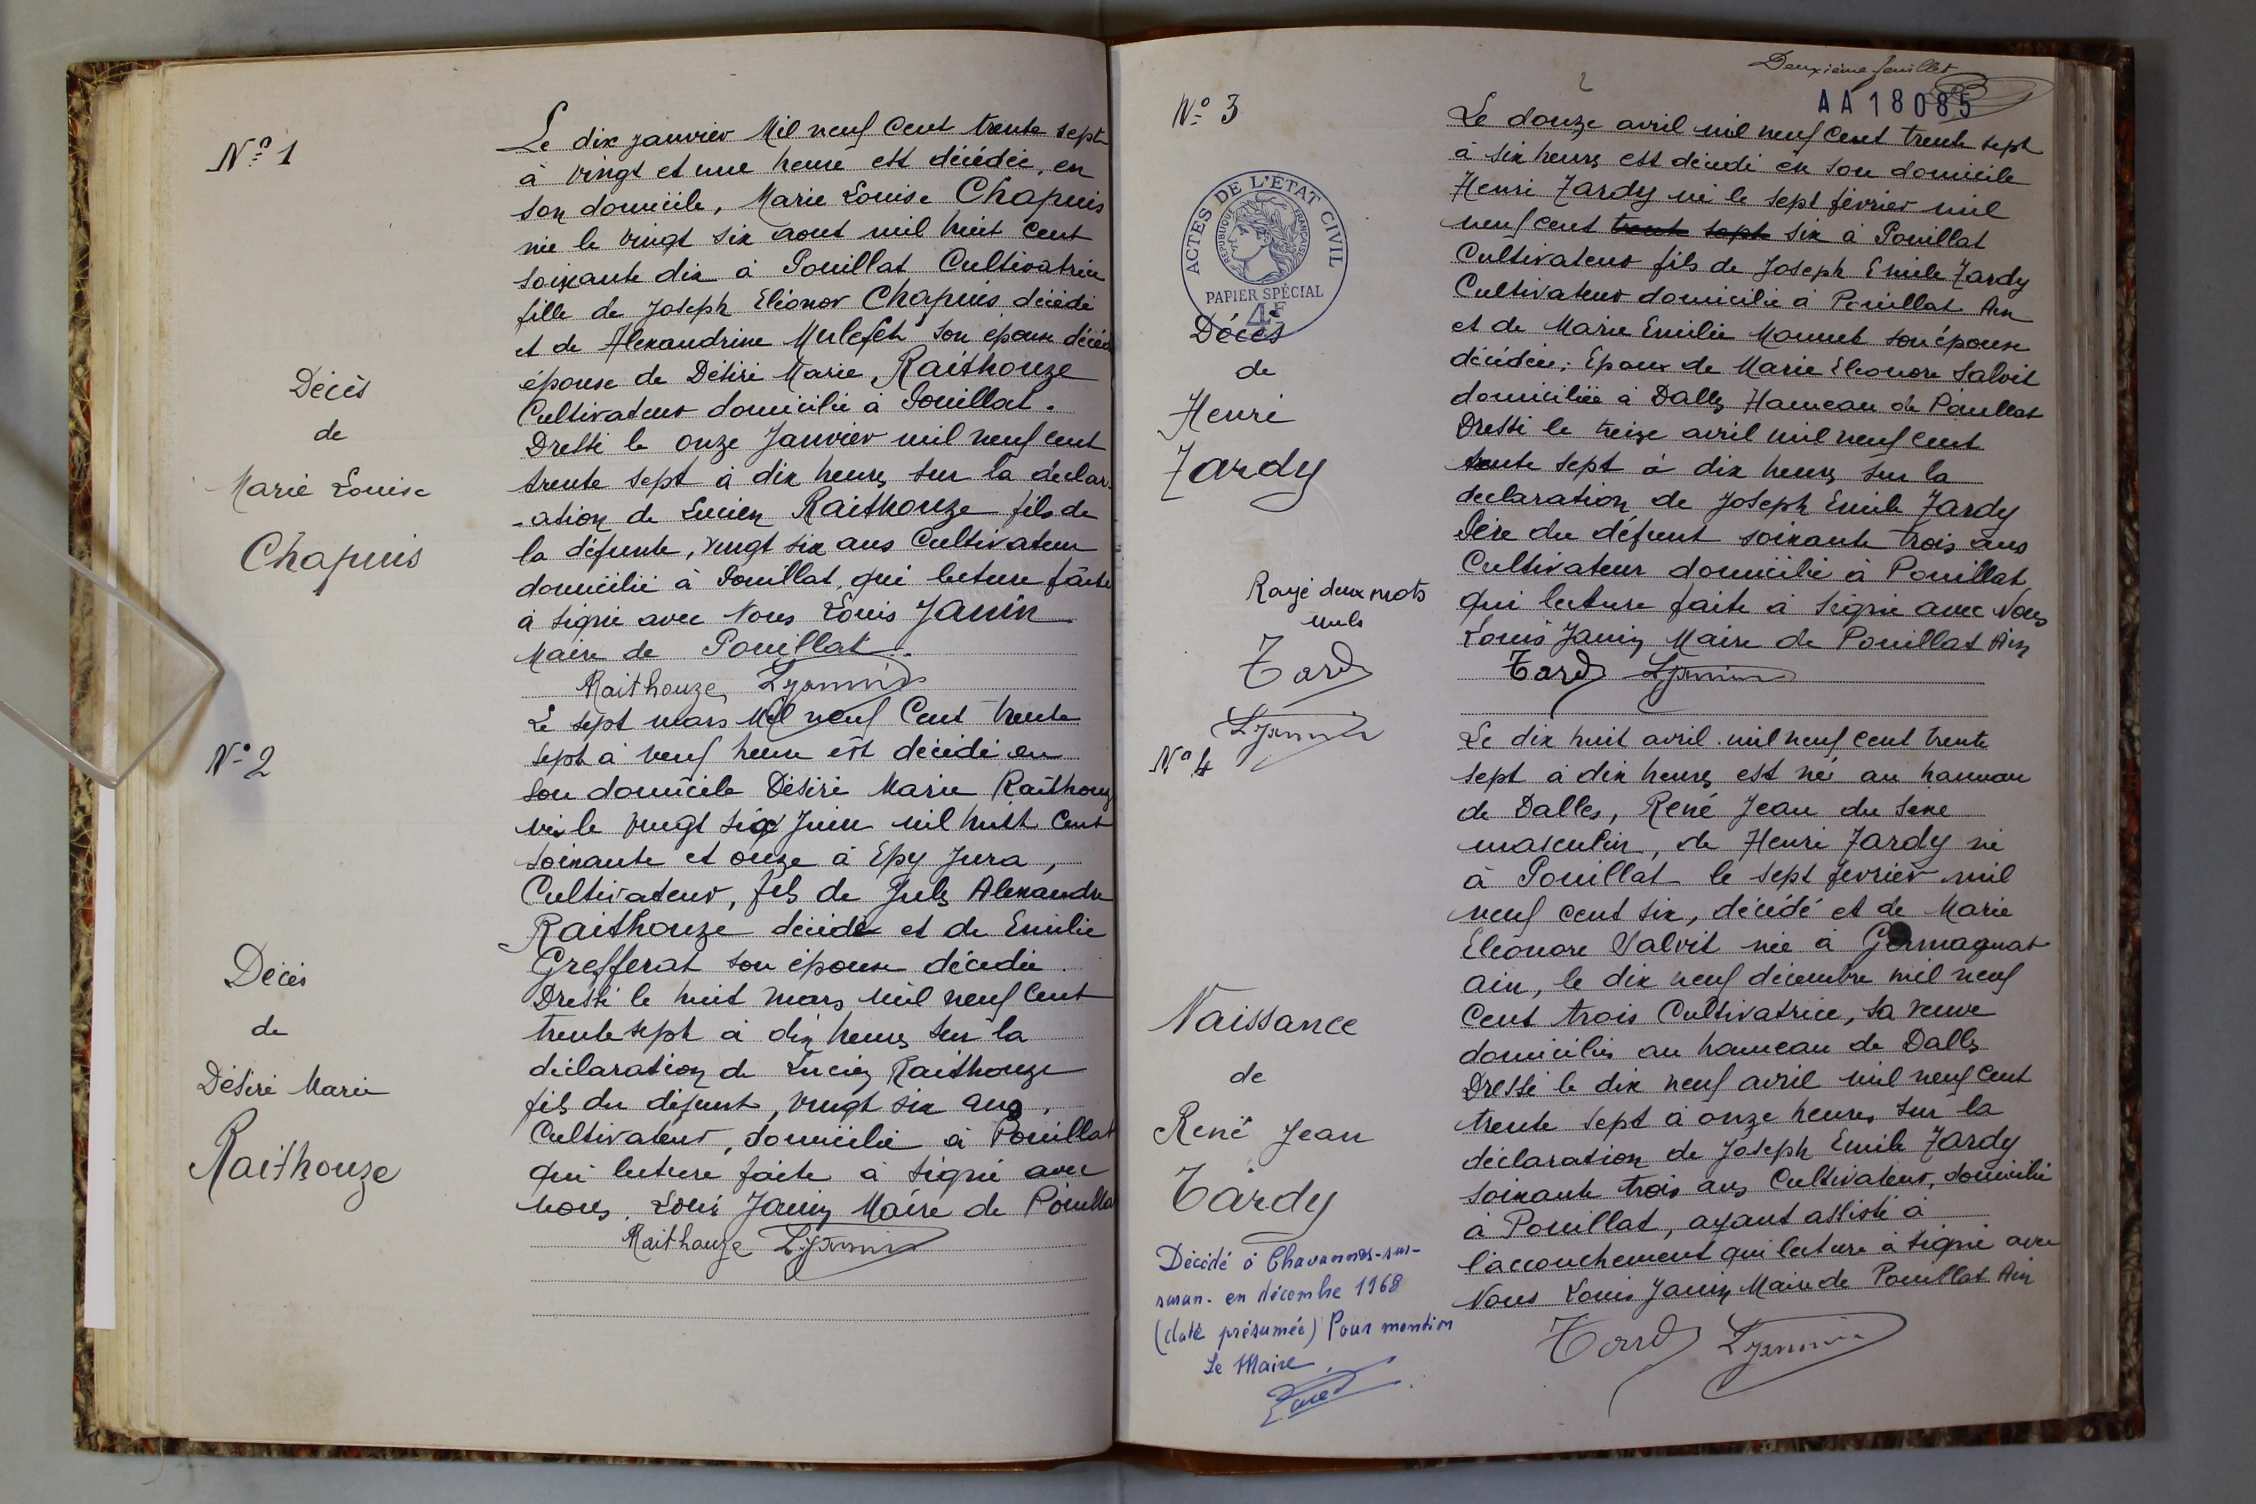 N° 1
Décès
de
Marie Louise
Chapuis
Le dix janvier Mil neuf cent trente sept
à vingt et une heure est décédée, en
son domicile, Marie Louise Chapuis
née le vingt six aout mil huit cent
soixante dix à Pouillat Cultivatrice
fille de Joseph Eléonor Chapuis décédé
et de Alexandrine son épouse décédée
épouse de Désiré Marie Raithouze
Cultivateur domicilié à Pouillat.
Dressé le onze Janvier mil neuf cent
trente sept à dix heures sur la déclar-
-ation de Lucien Raithouze fils de
la défunte, vingt six ans Cultivateur
domicilié à Pouillat, qui lecture faite
à signé avec Nous Louis Janin
Maire de Pouillat.
Raithouze LJanin
N° 2
Décès
de
Désiré Marie
Raithouze
Le sept mars Mil neuf Cent trente
sept à neuf heure est décédé en
son domicile Désiré Marie Raithouze
né le vingt six Juin mil huit Cent
soixante et onze à Epy Jura,
Cultivateur, fils de Jules Alexandre
Raithouze décédé et de Emilie
Grefferat son épouse décédée.
Dressé le huit mars mil neuf Cent
trente sept à dix heures sur la
déclaration de Lucien Raithouze
fils du défunt, vingt six ans,
Cultivateur, domicilié à Pouillat
qui lecture faite à signé avec
nous. Louis Janin Maire de Pouillat
Raithouze LJanin
Deuxième feuillet
2
AA18085
N° 3
ACTES DE L'ETAT CIVIL
REPUBLIQUE FRANÇAISE
PAPIER SPÉCIAL
4F
Décès
de
Henri
Tardy
Rayé deux mots
nuls
Tardy
LJanin
Le douze avril mil neuf cent trente sept
à six heures est décédé en son domicile
Henri Tardy né le sept février mil
neuf cent trente sept six à Pouillat
Cultivateur fils de Joseph Emile Tardy
Cultivateur domicilié à Pouillat Ain
et de Marie Emilie son épouse
décédée; Epoux de Marie Eleonore Salvit
domiciliée à Dalles Hameau de Pouillat
Dressé le treize avril mil neuf cent
trente sept à dix heures sur la
declaration de Joseph Emile Tardy
Père du défunt soixante trois ans
Cultivateur domicilié à Pouillat
qui lecture faite à signé avec Nous
Louis Janin Maire de Pouillat Ain
Tardy LJanin
N° 4
Naissance
de
René Jean
Tardy
Décédé à Chavannes-sur-
suran. en décembre 1968
(date présumée) Pour mention
Le Maire
Le dix huit avril mil neuf cent trente
sept à dix heures est né au hameau
de Dalles, René Jean du sexe
masculin, de Henri Tardy né
à Pouillat le sept février mil
neuf cent six, décédé et de Marie
Eléonore Salvit née à Germagnat
ain, le dix neuf décembre mil neuf
Cent trois Cultivatrice, sa veuve
domiciliés au hameau de Dalles
Dressé le dix neuf avril mil neuf cent
trente sept à onze heures sur la
déclaration de Joseph Emile Tardy
soixante trois ans Cultivateur, domicilié
à Pouillat, ayant assisté à
l'accouchement qui lecture à signé avec
Nous Louis Janin Maire de Pouillat Ain
Tardy LJanin